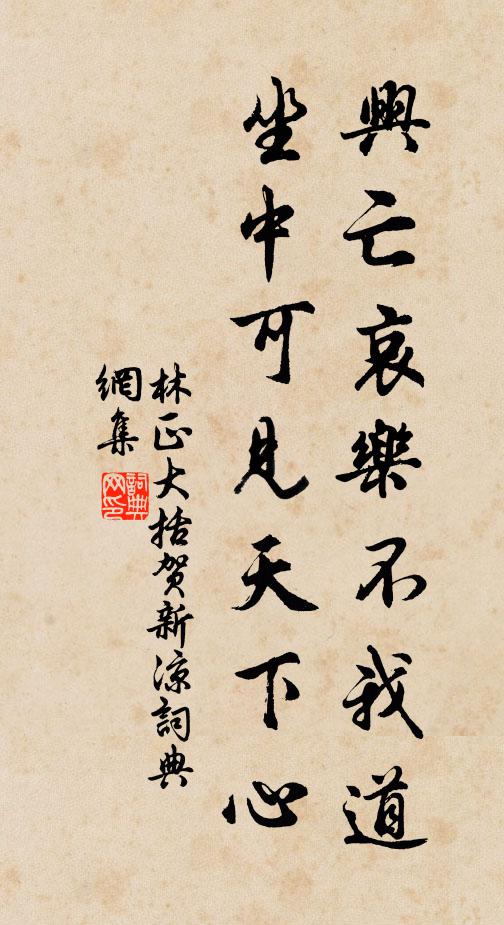 興亡哀樂不我道
坐中可見天下心
林正大括贺新凉詞典
網集
詞典网印